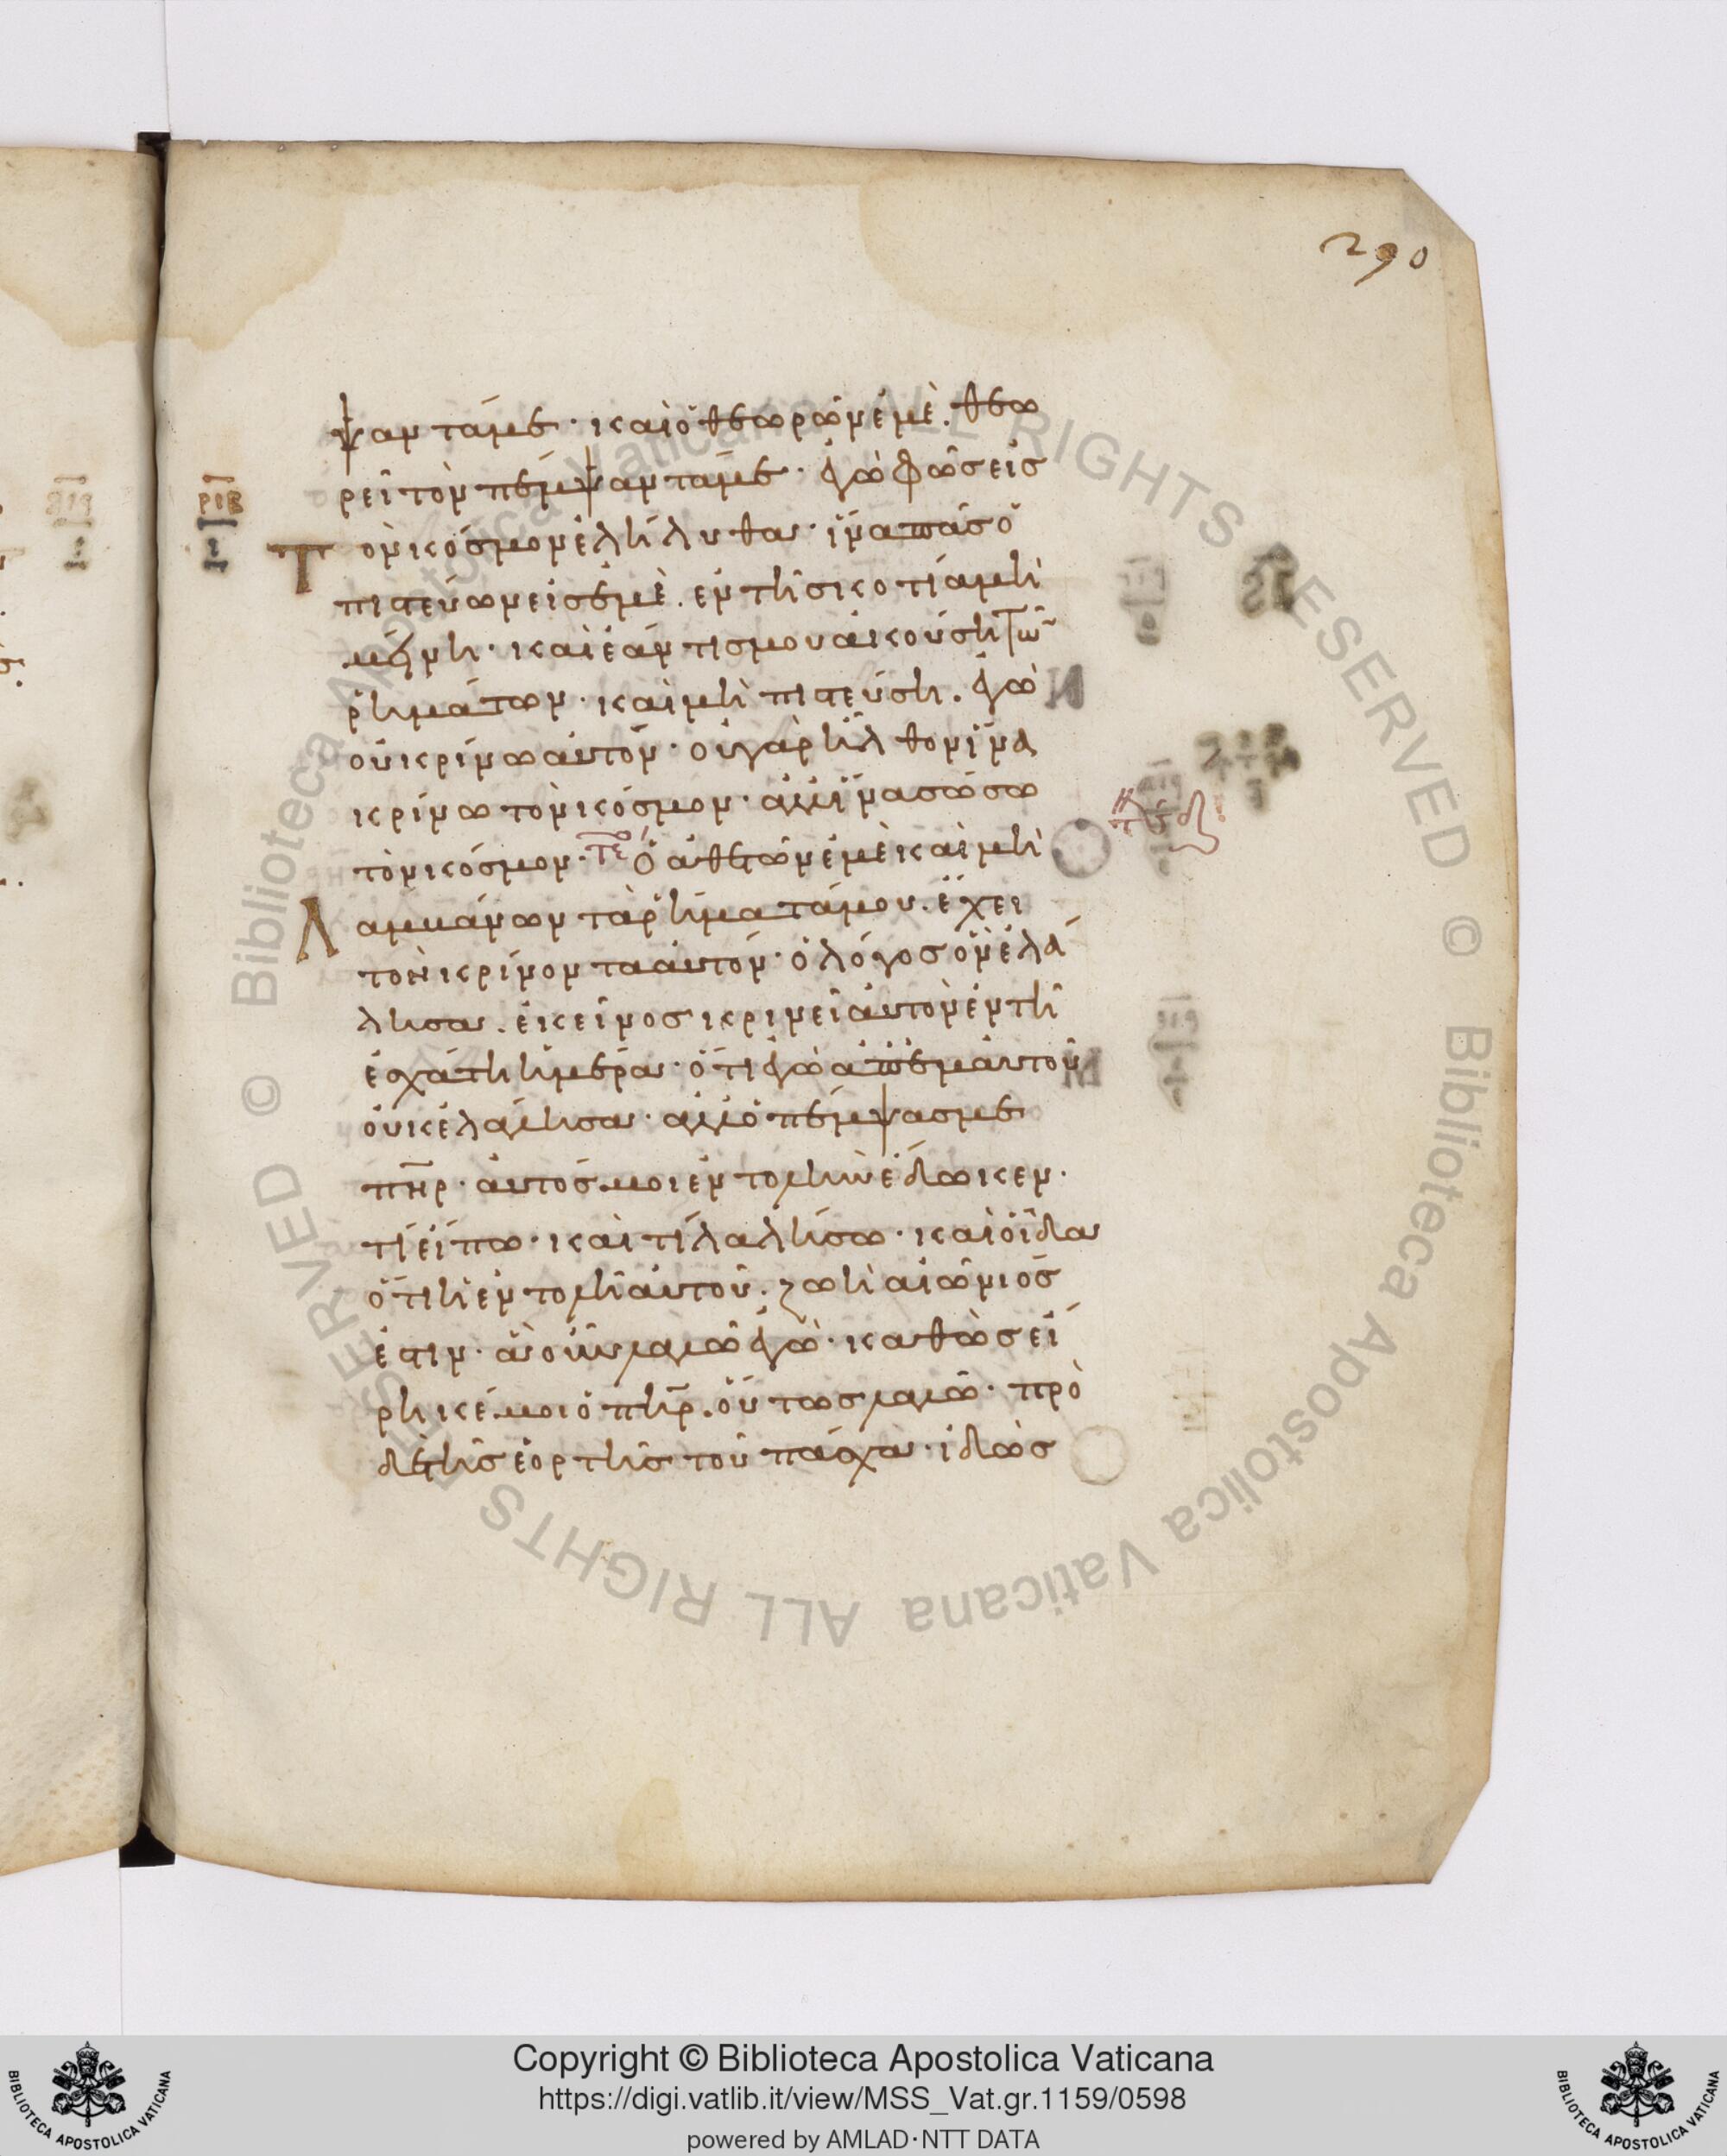 290
ψαντά με· καὶ ὁ θεωρῶν ἐμὲ. θεω
ρεῖ τὸν πέμψαντά με· ἐγὼ φῶς εἰς
ΡΙΒ
Τὸν κόσμον ἐλήλυθα· ἵνα πᾶς ὁ
πιστεύων εἰς ἐμὲ. ἐν τῆ σκοτία μὴ
μείνη· καὶ ἐάν τις μου ἀκούση τῶ
ῥημάτων· καὶ μὴ πιστεύση. ἐγὼ
οὐ κρίνω αὐτόν· οὐ γὰρ ἦλθον ἵνα
κρίνω τὸν κόσμον· ἀλλ' ἵνα σώσω
τὸν κόσμον· ὁ ἀθετῶν ἐμὲ καὶ μὴ
Λαμβάνων τὰ ῥήματά μου. ἔχει
τὸν κρίνοντα αὐτόν· ὁ λόγος ὃν ἐλά
λησα. ἐκεῖνος κρινεῖ αὐτὸν ἐν τῆ
ἐσχάτη ἡμέρα· ὅτι ἐγὼ ἀπ' ἐμαυτοῦ
οὐκ ἐλάλησα· ἀλλ' ὁ πέμψας με
πηρ· αὐτός μοι ἐντολὴν ἔδωκεν·
τί εἴπω· καὶ τί λαλήσω· καὶ οἶδα
ὅτι ἡ ἐντολὴ αὐτοῦ. ζωὴ αἰώνιός
ἐστιν· ἃ οὖν λαλῶ ἐγὼ· καθὼς εἴ
ρηκέ μοι ὁ πηρ. οὕτως λαλῶ· πρὸ
δὲ τῆς ἑορτῆς τοῦ πάσχα· ἰδὼς
Copyright © Biblioteca Apostolica Vaticana
https://digi.vatlib.it/view/MSS_Vat.gr.1159/0598
powered by AMLAD·NTT DATA
BIBLIOTECA APOSTOLICA VATICANA
BIBLIOTECA APOSTOLICA VATICANA
© Biblioteca Apostolica Vaticana ALL RIGHTS RESERVED
© Biblioteca Apostolica Vaticana ALL RIGHTS RESERVED